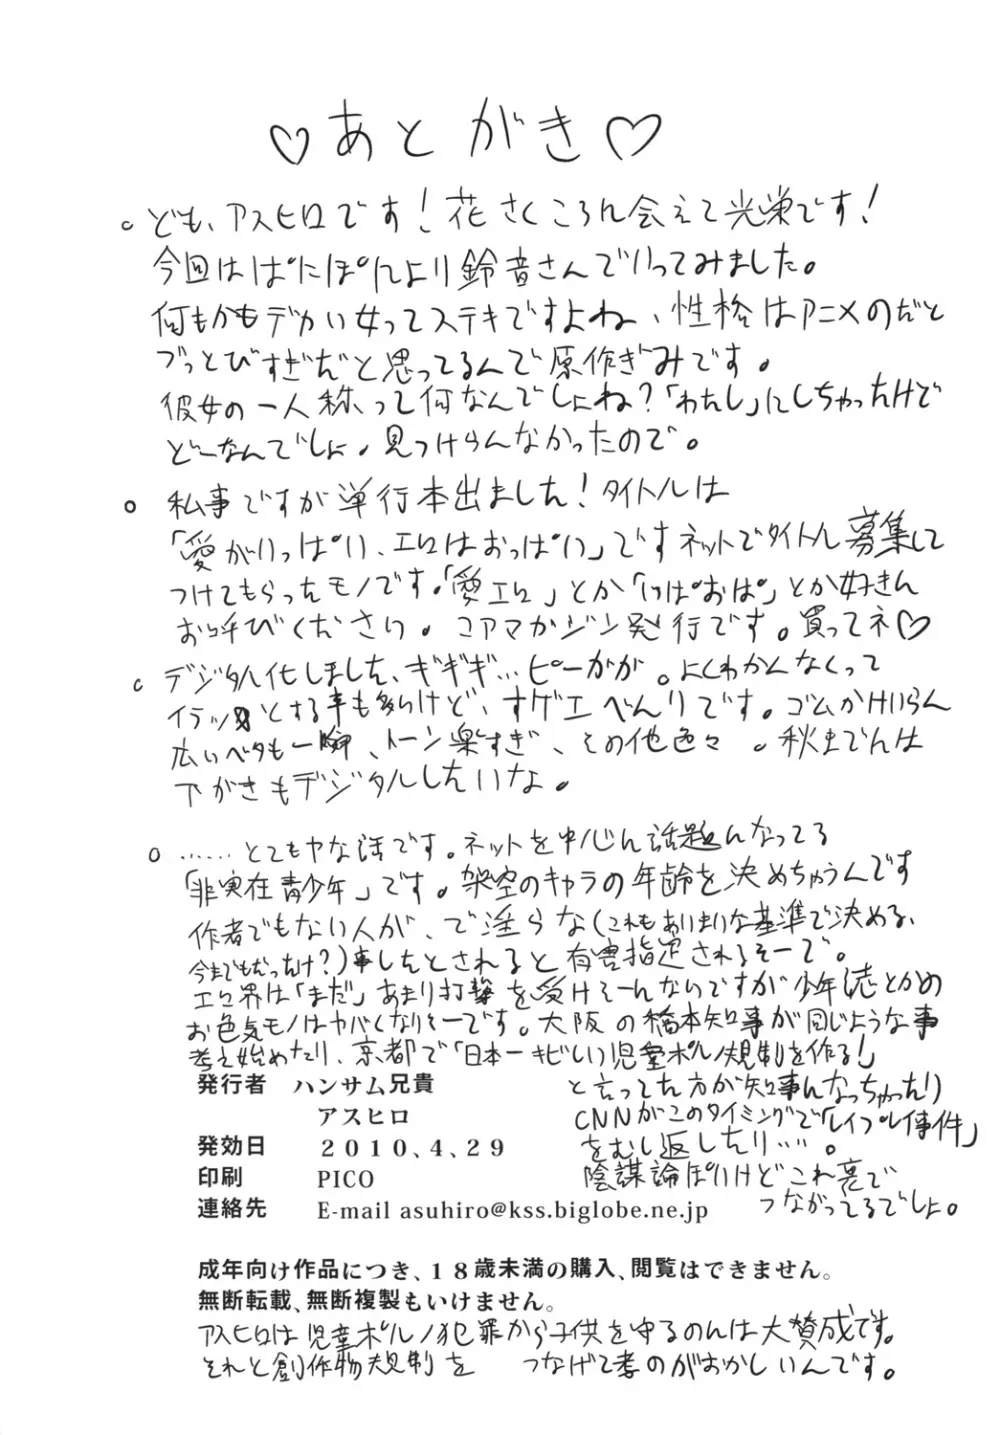 ♡あとがき♡
○ども、アスヒロです！花さくころに会えて光栄です！
今回はぱにぽにより鈴音さんでいってみました。
何もかもデカい女ってステキですよね、性格はアニメのだと
ブっとびすぎだと思ってるんで原作ぎみです。
彼女の一人称って何なんでしょね？「わたし」にしちゃったけど
どーなんでしょ。見つけらんなかったので。
○私事ですが単行本出ました！タイトルは
「愛がいっぱい、エロはおっぱい」ですネットでタイトル募集して
つけてもらったモノです。「愛エロ」とか「いぱおぱ」とか好きに
お呼びください。コアマガジン発行です。買ってネ♡
○デジタル化しました、ギギギ…ピーガガ。よくわかんなくって
イラッとする事も多いけど、すゲエべんりです。ゴムかけいらん
広いベタも一瞬、トーン楽すぎ、その他色々。秋までには
下がきもデジタルしたいな。
○……とてもヤな話です。ネットを中心に話題になってる
「非実在青少年」です。架空のキャラの年齢を決めちゃうんです
作者でもない人が、で淫らな(これもあいまいな基準で決める、
今までもだっけ？)事したとされると有害指定されるそーで。
エロ界は「まだ」あまり打撃を受けそーにないですが少年誌とかの
お色気モノはヤバくなりそーです。大阪の橋本知事が同じような事
考え始めたり、京都で「日本一キビしい児童ポルノ規制を作る！」
と言ってた方が知事になっちゃったり
CNNがこのタイミングで「レイプレイ事件」
をむし返したり…。
陰謀論ぽいけどこれ裏で
つながってるでしょ。
発行者 ハンサム兄貴
アスヒロ
発効日 2010、4、29
印刷 PICO
連絡先 E-mail asuhiro@kss.biglobe.ne.jp
成年向け作品につき、18歳未満の購入、閲覧はできません。
無断転載、無断複製もいけません。
アスヒロは児童ポルノ犯罪から子供を守るのには大賛成です。
それと創作物規制を つなげて考のがおかしいんです。